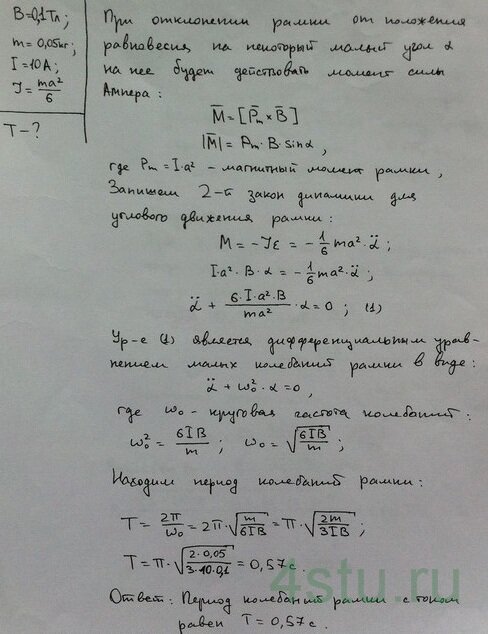 B=0,1Тл;
m=0,05кг;
I=10А;
J=ma²/6
T-?
При отклонении рамки от положения
равновесия на некоторый малый угол α
на нее будет действовать момент силы
Ампера:
M̄=[P̄m×B̄]
|M̄|=Pm·B·sinα,
где Pm=I·a² - магнитный момент рамки,
Запишем 2-й закон динамики для
углового движения рамки:
M=-Jε=-1/6 ma²·α̈;
I·a²·B·α=-1/6 ma²·α̈;
α̈+6·I·a²·B/ma²·α=0; (1)
Ур-е (1) является дифференциальным урав-
нением малых колебаний рамки в виде:
α̈+ω₀²·α=0,
где ω₀ - круговая частота колебаний:
ω₀²=6IB/m; ω₀=√(6IB/m);
Находим период колебаний рамки:
T=2π/ω₀=2π·√(m/6IB)=π·√(2m/3IB);
T=π·√(2·0,05/3·10·0,1)=0,57с.
4stu.ru
Ответ: Период колебаний рамки с током
равен T=0,57с.